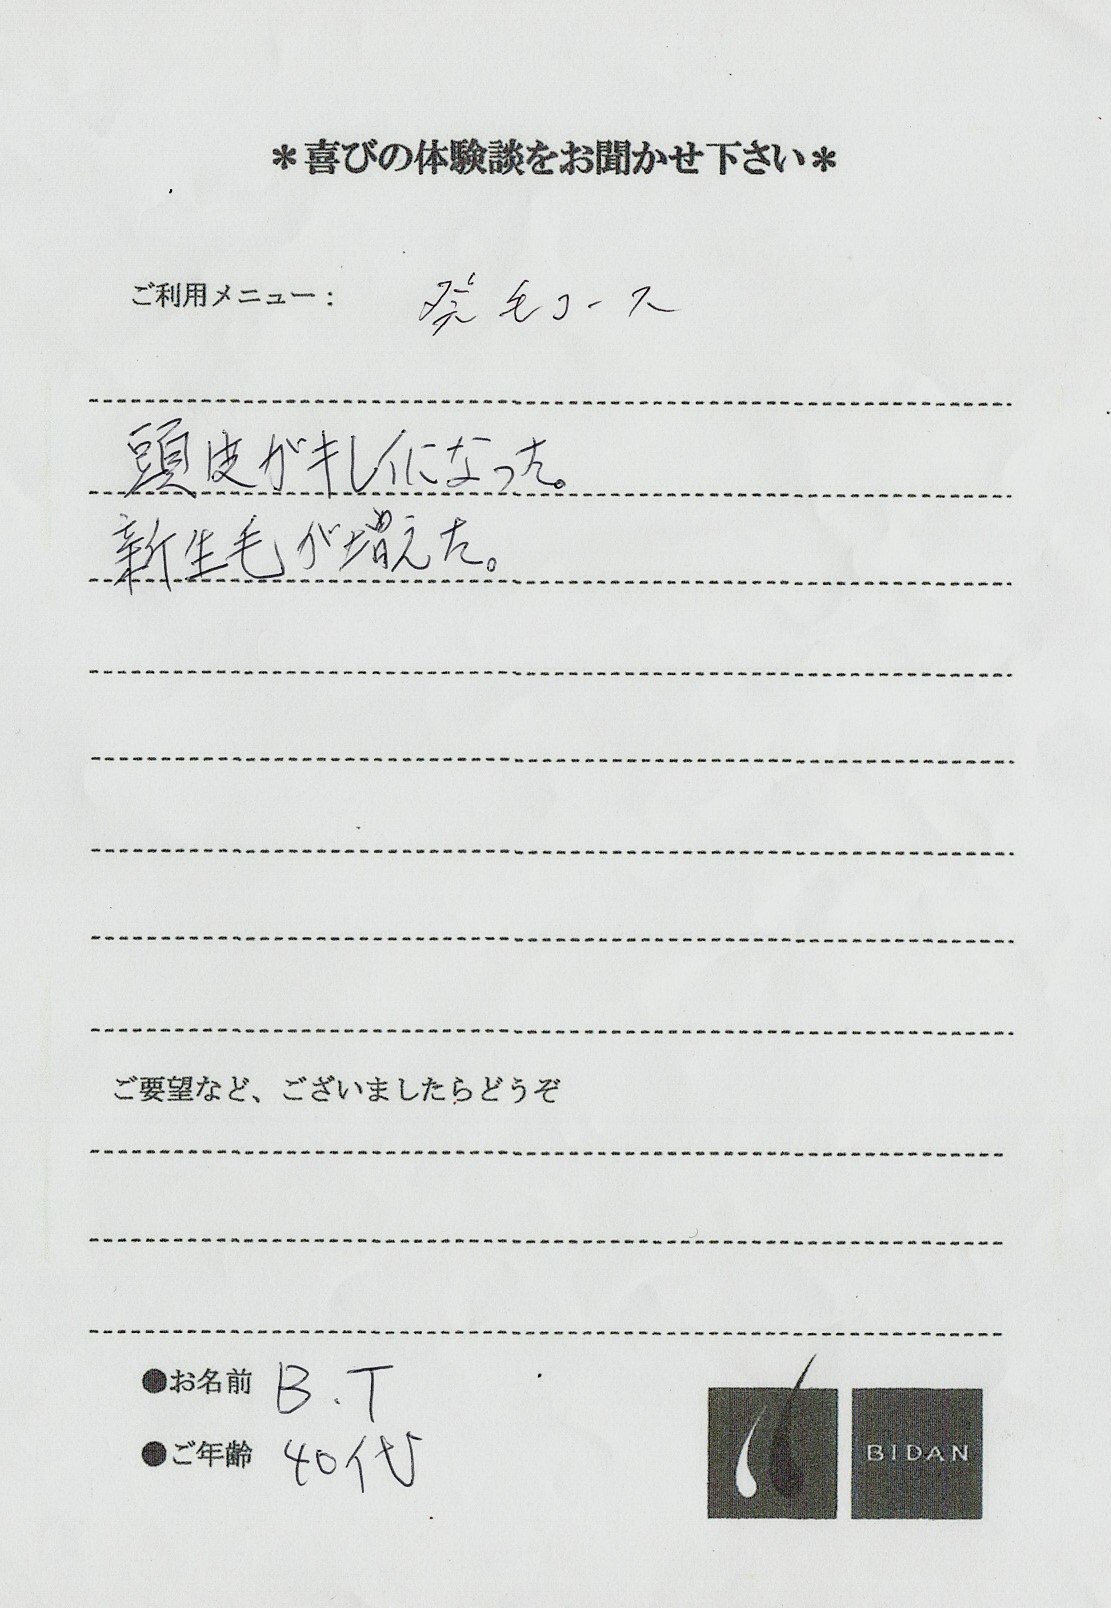 ＊喜びの体験談をお聞かせ下さい＊
ご利用メニュー： 発毛コース
頭皮がキレイになった。
新生毛が増えた。
ご要望など、ございましたらどうぞ
●お名前 B.T
●ご年齢 40代
BIDAN